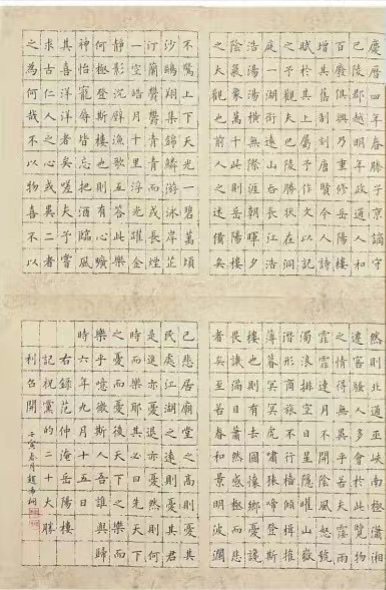 慶曆四年春滕子京謫守
巴陵郡越明年政通人和
百廢俱興乃重修岳陽樓
增其舊制刻唐賢今人詩
賦于其上屬予作文以記
之予觀夫巴陵勝狀在洞
庭一湖銜遠山吞長江浩
浩湯湯橫無際涯朝暉夕
陰氣象萬千此則岳陽樓
之大觀也前人之述備矣
然則北通巫峽南極瀟湘
遷客騷人多會於此覽物
之情得無異乎若夫霪雨
霏霏連月不開陰風怒號
濁浪排空日星隱曜山嶽
潛形商旅不行檣傾楫摧
薄暮冥冥虎嘯猿啼登斯
樓也則有去國懷鄉憂讒
畏譏滿目蕭然感極而悲
者矣至若春和景明波瀾
不驚上下天光一碧萬頃
沙鷗翔集錦鱗游泳岸芷
汀蘭郁郁青青而或長煙
一空皓月千里浮光躍金
靜影沉璧漁歌互答此樂
何極登斯樓也則有心曠
神怡寵辱皆忘把酒臨風
其喜洋洋者矣嗟夫予嘗
求古仁人之心或異二者
之為何哉不以物喜不以
己悲居廟堂之高則憂其
民處江湖之遠則憂其君
是進亦憂退亦憂然則何
時而樂耶其必曰先天下
之憂而憂後天下之樂而
樂乎噫微斯人吾誰與歸
時六年九月十五日
右錄范仲淹岳陽樓
記祝黨的二十大勝
利召開 壬寅春月趙